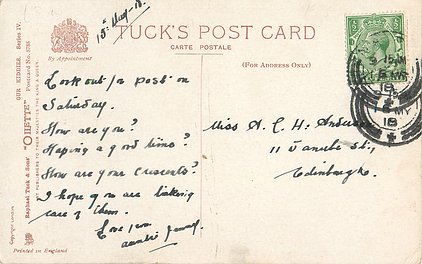 15th May - 18.
TUCK'S POST CARD
CARTE POSTALE
By Appointment
(FOR ADDRESS ONLY)
Look out for post on
Saturday.
How are you?
Having a good time?
How are your Crescents?
I hope you are taking
care of them.
Love from
Miss A. C. H. Anderson
11 Danube St.,
Edinburgh.
OUR KIDDIES. Series IV.
"OILETTE" Postcard No.
Raphael Tuck & Sons'
ART PUBLISHERS TO THEIR MAJESTIES THE KING & QUEEN
Copyright London
Printed in England
MY
18